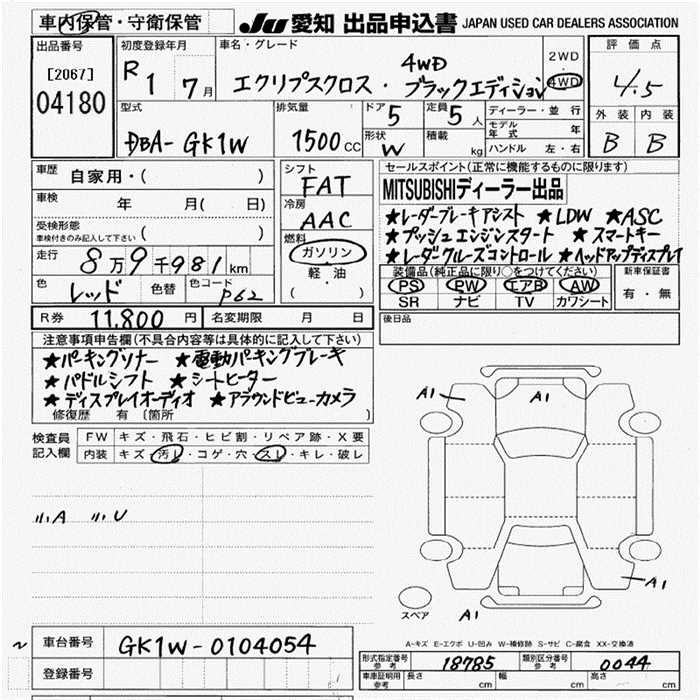 車内保管・守衛保管
JU 愛知 出品申込書 JAPAN USED CAR DEALERS ASSOCIATION
出品番号
[2067]
04180
初度登録年月
R 1 7月
車名・グレード
エクリプスクロス・ 4WD ブラックエディション
2WD
4WD
評価点
4.5
外装 内装
B B
型式
DBA- GK1W
排気量
1500CC
ドア 5
定員 5人
形状 W
積載 kg
ディーラー・並行
モデル年式 年
ハンドル 左・右
車歴 自家用・( )
車検 年 月( 日)
受検形態
車検付きのみ記入して下さい ( )
走行 8万9千981km
色 レッド 色替 色コード P62
シフト
FAT
冷房
AAC
燃料
ガソリン
軽・油
( )
セールスポイント(正常に機能するものに限ります)
MITSUBISHIディーラー出品
★レーダーブレーキアシスト ★LDW ★ASC
★プッシュエンジンスタート ★スマートキー
★レーダークルーズコントロール ★ヘッドアップディスプレイ
装備品(純正品に限り○をつけてください)
PS PW エアB AW
SR ナビ TV カワシート
新車保証書
有・無
R券 11,800円 名変期限 月 日
後日品
注意事項申告欄(不具合内容等は具体的に記入して下さい)
★パーキングソナー ★電動パーキングブレーキ
★パドルシフト ★シートヒーター
★ディスプレイオーディオ ★アラウンドビューカメラ
修復歴 有〔箇所 〕
検査員記入欄
FW キズ・飛石・ヒビ割・リペア跡・X要
内装 キズ・汚レ・コゲ・穴・スレ・キレ・破レ
小小A 小小U
A1
A1
A1
A1
スペア
A-キズ E-エクボ U-凹み W-補修跡 S-サビ C-腐食 XX-交換済
車台番号 GK1W-0104054
登録番号
形式指定番号 参考 18785 類別区分番号 参考 0044
車庫証明用 参考 長さ cm 幅 cm 高さ cm